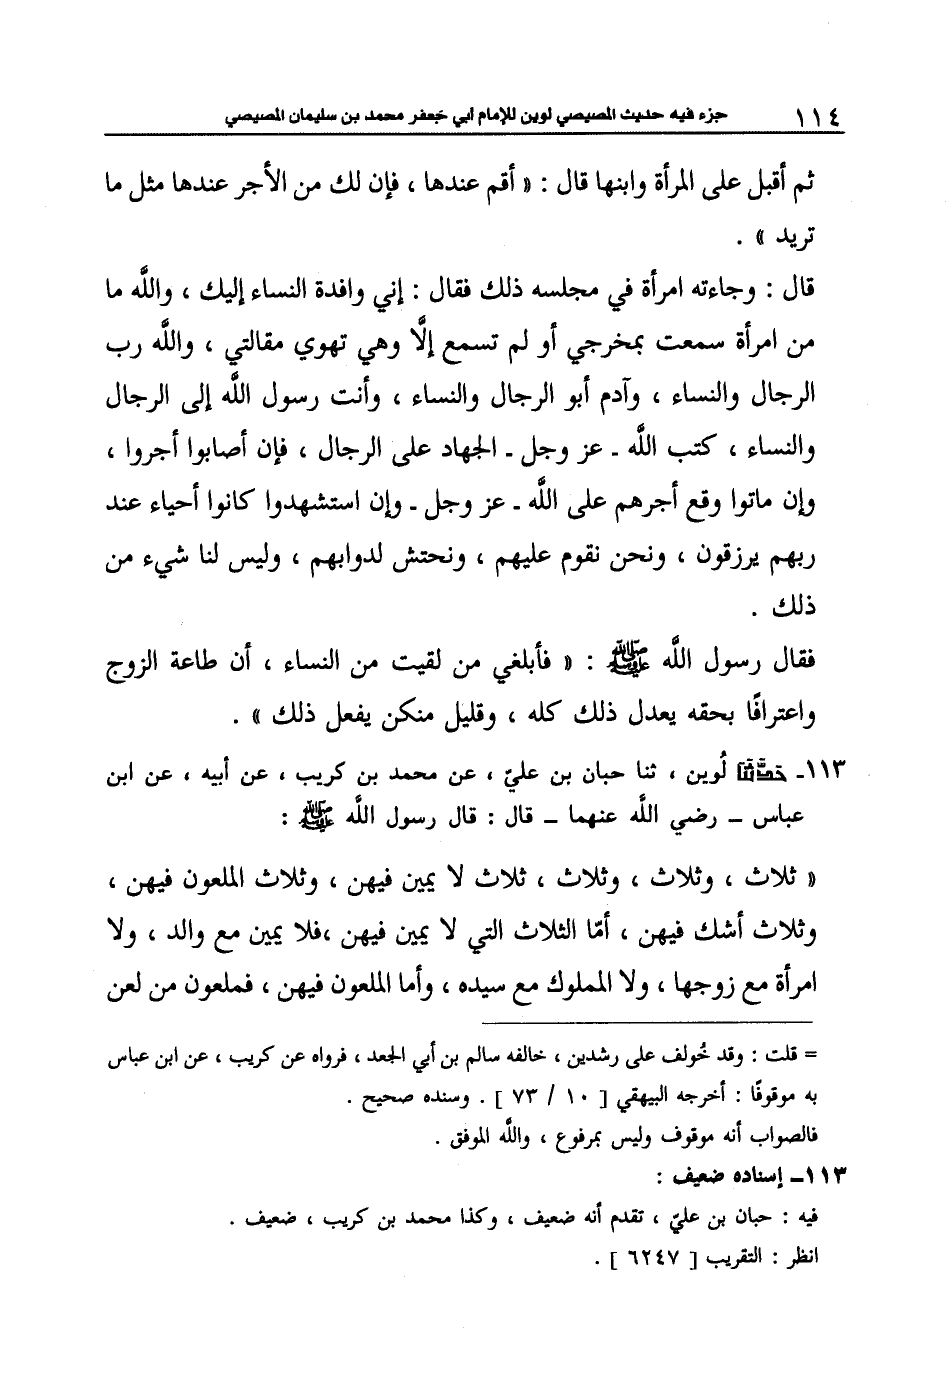 ١١٤ جزء فيه حديث المصيصي لوين للإمام أبي جعفر محمد بن سليمان المصيصي
ثم أقبل على المرأة وابنها قال : « أقم عندها ، فإن لك من الأجر عندها مثل ما
تريد » .
قال : وجاءته امرأة في مجلسه ذلك فقال : إني وافدة النساء إليك ، واللَّه ما
من امرأة سمعت بمخرجي أو لم تسمع إلَّا وهي تهوي مقالتي ، واللَّه رب
الرجال والنساء ، وآدم أبو الرجال والنساء ، وأنت رسول اللَّه إلى الرجال
والنساء ، كتب اللَّه ـ عز وجل ـ الجهاد على الرجال ، فإن أصابوا أجروا ،
وإن ماتوا وقع أجرهم على اللَّه ـ عز وجل ـ وإن استشهدوا كانوا أحياء عند
ربهم يرزقون ، ونحن نقوم عليهم ، ونحتش لدوابهم ، وليس لنا شيء من
ذلك .
فقال رسول اللَّه ﷺ : « فأبلغي من لقيت من النساء ، أن طاعة الزوج
واعترافًا بحقه يعدل ذلك كله ، وقليل منكن يفعل ذلك » .
١١٣ـ حدَّثنا لُوين ، ثنا حبان بن عليّ ، عن محمد بن كريب ، عن أبيه ، عن ابن
عباس ــ رضي اللَّه عنهما ــ قال : قال رسول اللَّه ﷺ :
« ثلاث ، وثلاث ، وثلاث ، ثلاث لا يمين فيهن ، وثلاث الملعون فيهن ،
وثلاث أشك فيهن ، أمّا الثلاث التي لا يمين فيهن ،فلا يمين مع والد ، ولا
امرأة مع زوجها ، ولا المملوك مع سيده ، وأما الملعون فيهن ، فملعون من لعن
= قلت : وقد خُولف على رشدين ، خالفه سالم بن أبي الجعد ، فرواه عن كريب ، عن ابن عباس
به موقوفًا : أخرجه البيهقي [ ١٠ / ٧٣ ] . وسنده صحيح .
فالصواب أنه موقوف وليس بمرفوع ، واللَّه الموفق .
١١٣ــ إسناده ضعيف :
فيه : حبان بن عليّ ، تقدم أنه ضعيف ، وكذا محمد بن كريب ، ضعيف .
انظر : التقريب [ ٦٢٤٧ ] .